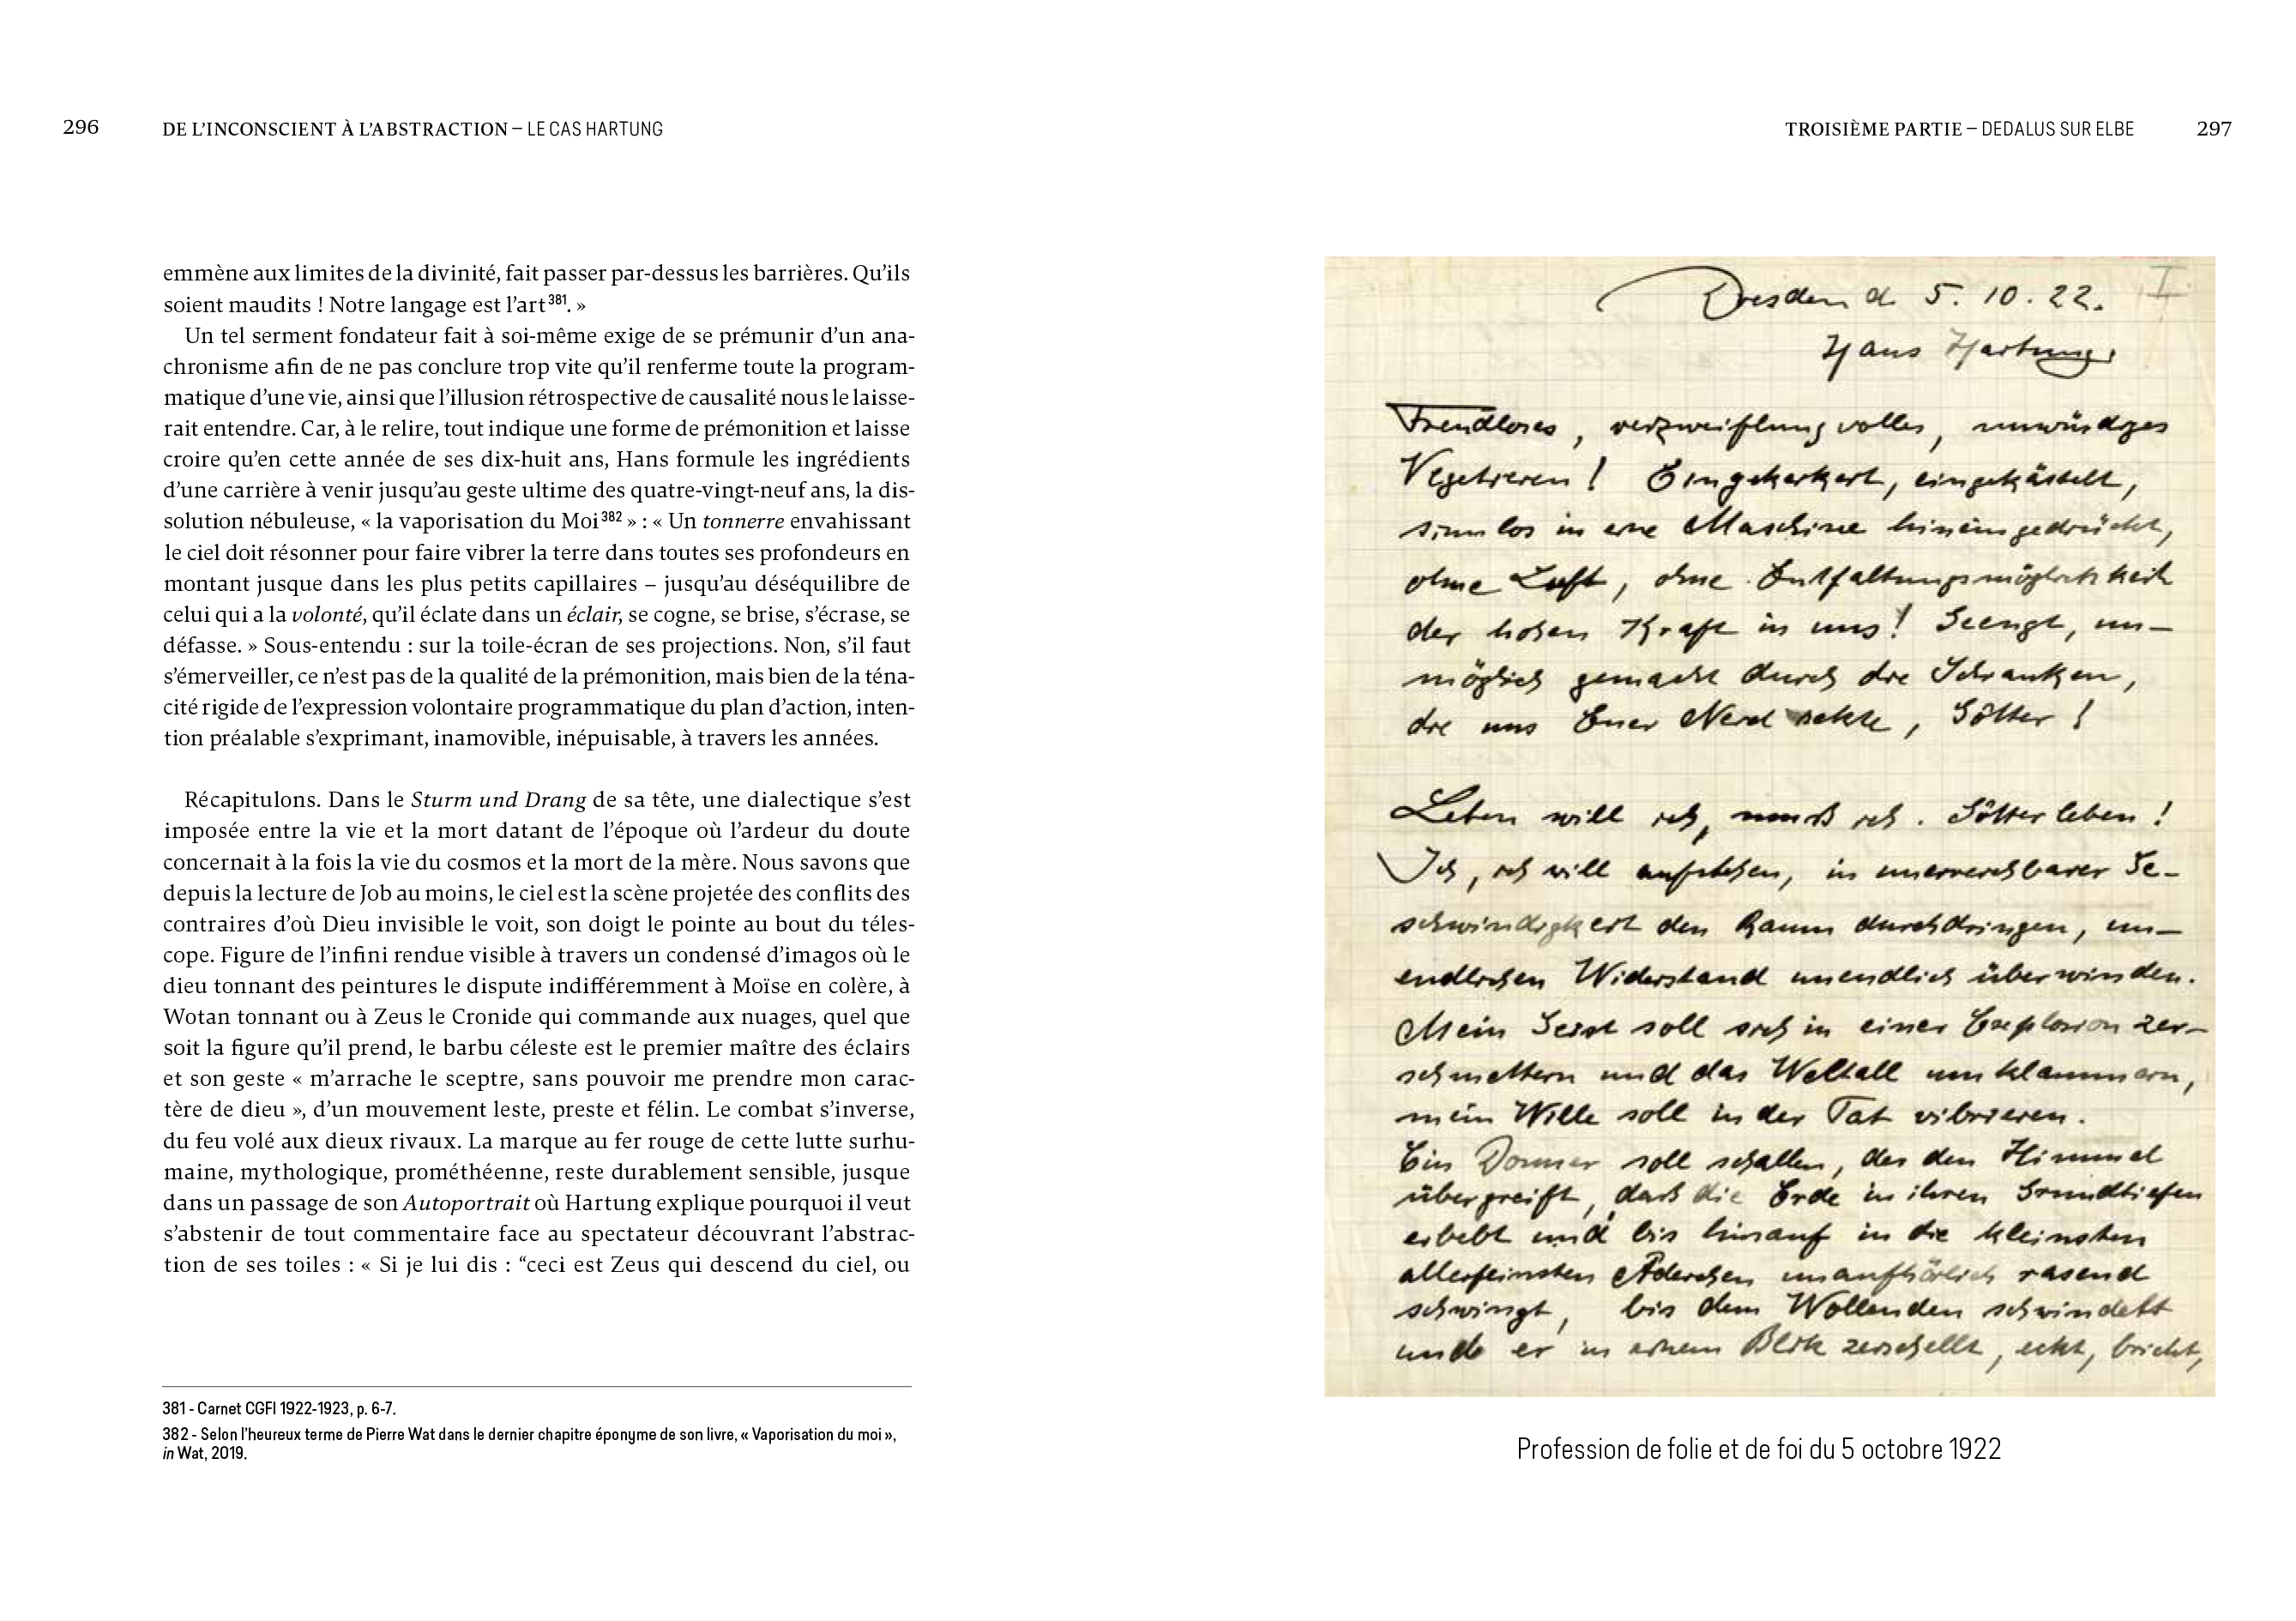 296
DE L’INCONSCIENT À L’ABSTRACTION – LE CAS HARTUNG
emmène aux limites de la divinité, fait passer par-dessus les barrières. Qu’ils
soient maudits ! Notre langage est l’art381. »
Un tel serment fondateur fait à soi-même exige de se prémunir d’un ana-
chronisme afin de ne pas conclure trop vite qu’il renferme toute la program-
matique d’une vie, ainsi que l’illusion rétrospective de causalité nous le laisse-
rait entendre. Car, à le relire, tout indique une forme de prémonition et laisse
croire qu’en cette année de ses dix-huit ans, Hans formule les ingrédients
d’une carrière à venir jusqu’au geste ultime des quatre-vingt-neuf ans, la dis-
solution nébuleuse, « la vaporisation du Moi382 » : « Un tonnerre envahissant
le ciel doit résonner pour faire vibrer la terre dans toutes ses profondeurs en
montant jusque dans les plus petits capillaires – jusqu’au déséquilibre de
celui qui a la volonté, qu’il éclate dans un éclair, se cogne, se brise, s’écrase, se
défasse. » Sous-entendu : sur la toile-écran de ses projections. Non, s’il faut
s’émerveiller, ce n’est pas de la qualité de la prémonition, mais bien de la téna-
cité rigide de l’expression volontaire programmatique du plan d’action, inten-
tion préalable s’exprimant, inamovible, inépuisable, à travers les années.
Récapitulons. Dans le Sturm und Drang de sa tête, une dialectique s’est
imposée entre la vie et la mort datant de l’époque où l’ardeur du doute
concernait à la fois la vie du cosmos et la mort de la mère. Nous savons que
depuis la lecture de Job au moins, le ciel est la scène projetée des conflits des
contraires d’où Dieu invisible le voit, son doigt le pointe au bout du téles-
cope. Figure de l’infini rendue visible à travers un condensé d’imagos où le
dieu tonnant des peintures le dispute indifféremment à Moïse en colère, à
Wotan tonnant ou à Zeus le Cronide qui commande aux nuages, quel que
soit la figure qu’il prend, le barbu céleste est le premier maître des éclairs
et son geste « m’arrache le sceptre, sans pouvoir me prendre mon carac-
tère de dieu », d’un mouvement leste, preste et félin. Le combat s’inverse,
du feu volé aux dieux rivaux. La marque au fer rouge de cette lutte surhu-
maine, mythologique, prométhéenne, reste durablement sensible, jusque
dans un passage de son Autoportrait où Hartung explique pourquoi il veut
s’abstenir de tout commentaire face au spectateur découvrant l’abstrac-
tion de ses toiles : « Si je lui dis : “ceci est Zeus qui descend du ciel, ou
381 - Carnet CGFI 1922-1923, p. 6-7.
382 - Selon l’heureux terme de Pierre Wat dans le dernier chapitre éponyme de son livre, « Vaporisation du moi »,
in Wat, 2019.
TROISIÈME PARTIE – DEDALUS SUR ELBE
297
Dresden d. 5. 10. 22. I.
Hans Hartung
Freudloses, verzweiflungvolles, unwürdges
Vegetieren ! Eingekerkert, eingekästelt,
sinnlos in eine Maschine hineingedrückt,
ohne Luft, ohne Entfaltungsmöglichkeit
der hohen Kraft in uns ! Geengt, un-
möglich gemacht durch die Schranken,
die uns Euer Neid sekte, Götter !
Leben will ich, muß ich. Götter leben !
Ich, ich will aufstehen, in unerreichbarer Ge-
schwindigkeit den Raum durchdringen, un-
endlichen Widerstand unendlich überwinden.
Mein Geist soll sich in einer Explosion zer-
schmettern und das Weltall umklammern,
mein Wille soll in der Tat vibrieren.
Ein Donner soll schallen, der den Himmel
übergreift, daß die Erde in ihren Grundtiefen
erbebt und bis hinauf in die kleinsten
allerfeinsten Aderchen unaufhörlich rasend
schwingt, bis dem Wollenden schwindelt
und er in einem Blitz zerschellt, eckt, bricht,
Profession de folie et de foi du 5 octobre 1922